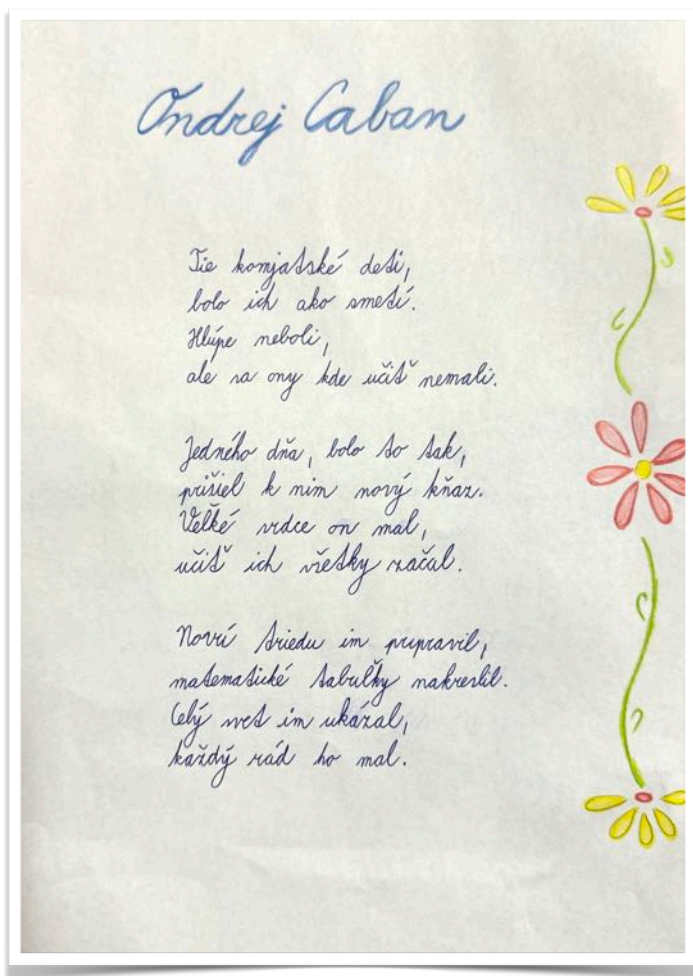 Ondrej Caban
Tie komjatské deti,
bolo ich ako smetí.
Hlúpe neboli,
ale sa ony kde učiť nemali.
Jedného dňa, bolo to tak,
prišiel k nim nový kňaz.
Veľké srdce on mal,
učiť ich všetky začal.
Novú triedu im pripravil,
matematické tabuľky nakreslil.
Celý svet im ukázal,
každý rád ho mal.